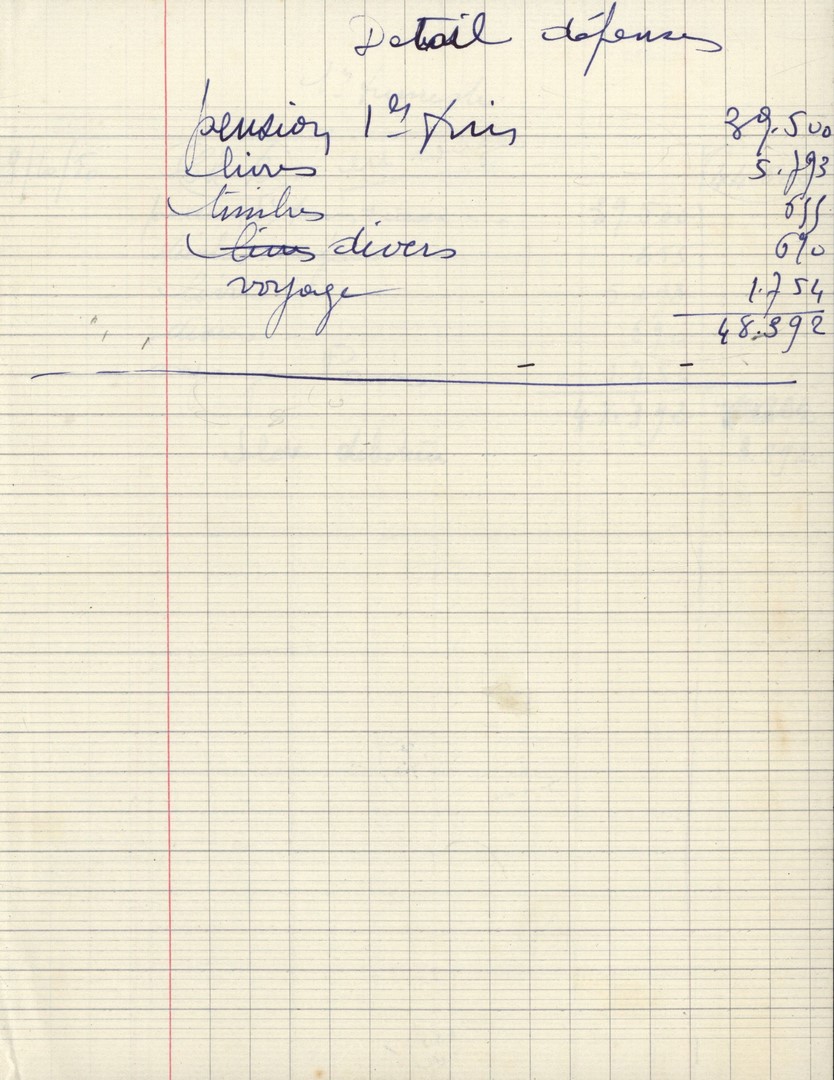 Detail dépenses
pension 1er trim 39.500
livres 5.793
timbres 655
divers 690
voyage 1.754
48.392